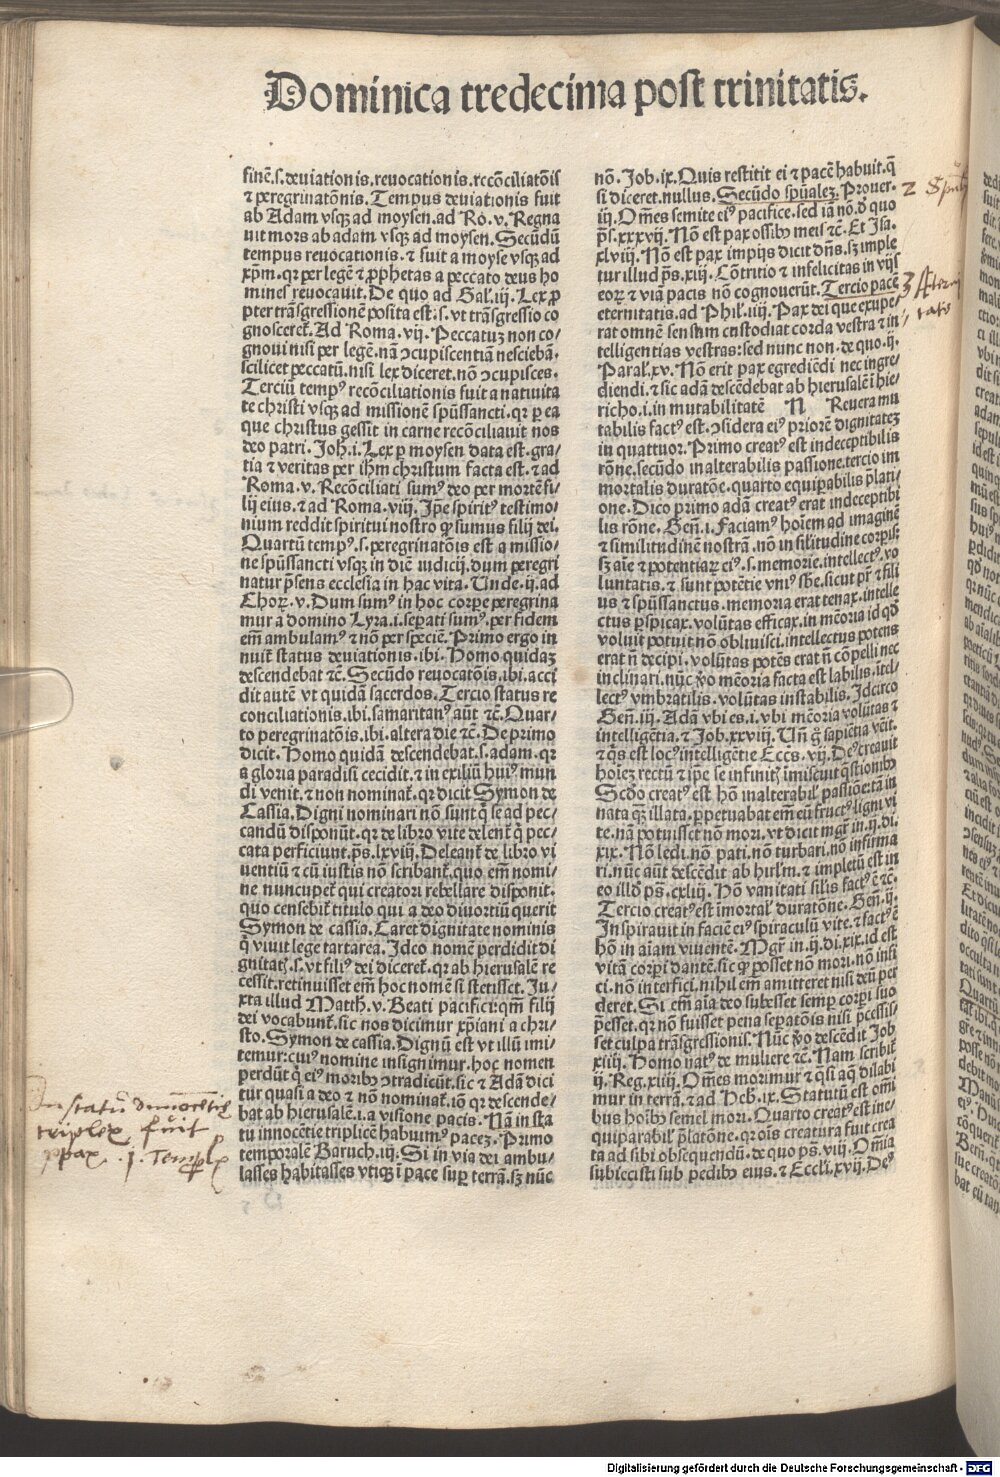 Dominica tredecima post trinitatis.
finē.s.deuiationis.reuocationis.recōciliatōis
⁊ peregrinatōnis. Tempus deuiationis fuit
ab Adam vsqȝ ad moysen.ad Ro.v. Regna
uit mors ab adam vsqȝ ad moysen. Secūdū
tempus reuocationis. ⁊ fuit a moyse vsqȝ ad
xp̄m. qr per legē ⁊ ꝓphetas a peccato deus ho
mines reuocauit. De quo ad Gal.iij. Lex ꝓ
pter trāsgressionē posita est.s. vt trāsgressio co
gnosceret̄. Ad Roma.vij. Peccatuȝ non co⸗
gnoui nisi per legē. nā ↄcupiscentiā nesciebā.
scilicet peccatū. nisi lex diceret. nō ↄcupisces.
Terciū tempꝰ recōciliationis fuit a natiuita
te christi vsqȝ ad missionē spūssancti. qr ꝑ ea
que christus gessit in carne recōciliauit nos
deo patri. Joh̄.i. Lex ꝑ moysen data est. gra⸗
tia ⁊ veritas per ih̄m christum facta est. ⁊ ad
Roma.v. Recōciliati sumꝰ deo per mortē fi⸗
lij eius. ⁊ ad Roma.viij. Ip̄e spiritꝰ testimo⸗
nium reddit spiritui nostro ꝙ sumus filij dei.
Quartū tempꝰ.s.peregrinatōis est a missio⸗
ne spūssancti vsqȝ in diē iudicij. dum peregri
natur p̄sens ecclesia in hac vita. Unde.ij.ad
Choꝝ.v. Dum sumꝰ in hoc corpe peregrina
mur a domino Lyra.i.sepati sumꝰ. per fidem
em̄ ambulamꝰ ⁊ nō per speciē. Primo ergo in
nuit̄ status deuiationis. ibi. Homo quidaȝ
descendebat ⁊c. Secūdo reuocatōis. ibi. acci
dit autē vt quidā sacerdos. Tercio status re
conciliationis. ibi. samaritanꝰ aūt ⁊c. Quar⸗
to peregrinatōis. ibi. altera die ⁊c. De primo
dicit. Homo quidā descendebat.s.adam. qr
a gloria paradisi cecidit. ⁊ in exiliū huiꝰ mun
di venit. ⁊ non nominat̄. qr dicit Symon de
Cassia. Digni nominari nō sunt q̄ se ad pec⸗
candū disponūt. qr de libro vite delent̄ q̄ pec⸗
cata perficiunt. p̄s.lxviij. Deleant̄ de libro vi
uentiū ⁊ cū iustis nō scribant̄. quo em̄ nomi⸗
ne nuncupet̄ qui creatori rebellare disponit.
quo censebit̄ titulo qui a deo diuortiū querit
Symon de cassia. Caret dignitate nominis
q̄ viuit lege tartarea. Idco nomē perdidit di
gnitatꝭ.s. vt filiꝰ dei diceret̄. qr ab hierusalē re
cessit. retinuisset em̄ hoc nomē si stetisset. Ju⸗
xta illud Matth.v. Beati pacifici: qm̄ filij
dei vocabunt̄. sic nos dicimur xp̄iani a chri⸗
sto. Symon de cassia. Dignū est vt illū imi⸗
temur: cuiꝰ nomine insignimur. hoc nomen
perdūt q̄ eiꝰ moribꝫ ↄtradicūt. sic ⁊ Adā dici
tur quasi a deo ⁊ nō nominat̄. iā qr descende⸗
bat ab hierusalē.i.a visione pacis. Nā in sta
tu innocētie triplicē habuimꝰ paceȝ. Primo
temporale Baruch.iij. Si in via dei ambu⸗
lasses habitasses vtiqȝ ī pace suꝑ terrā. sȝ nūc
nō. Job.ix. Quis restitit ei ⁊ pacē habuit. q̄
si diceret. nullus. Secūdo spūalez. Prouer.
iij. Om̄es semite eiꝰ pacifice. sed iā nō. d̄ quo
p̄s.xxxvij. Nō est pax ossibꝫ meis ⁊c. Et Isa.
xlviij. Nō est pax impijs dicit dn̄s. sȝ imple
tur illud p̄s.xiij. Cōtritio ⁊ infelicitas in vijs
eoꝝ ⁊ viā pacis nō cognouerūt. Tercio pacē
eternitatis. ad Phil̄.iiij. Pax dei que exupe⸗
rat omnē sensum custodiat corda vestra ⁊ in⸗
telligentias vestras: sed nunc non. de quo.ij.
Paral̄.xv. Nō erit pax egrediēdi nec ingre⸗
diendi. ⁊ sic adā descēdebat ab hierusalē ī hie⸗
richo.i.in mutabilitatē N Reuera mu
tabilis factꝰ est. ↄsidera eiꝰ priorē dignitateȝ
in quattuor. Primo creatꝰ est indeceptibilis
rōne. secūdo inalterabilis passione. tercio im
mortalis duratōe. quarto equipabilis p̄lati⸗
one. Dico primo adā creatꝰ erat indeceptibi
lis rōne. Gen̄.i. Faciamꝰ hoīem ad imaginē
⁊ similitudinē nostrā. nō in silitudine corpis:
sȝ aīe ⁊ potentiaꝝ eiꝰ.s.memorie. intellectꝰ. vo
luntatis. ⁊ sunt potētie vniꝰ sb̄e. sicut pr̄ ⁊ fili
us ⁊ spūssanctus. memoria erat tenax. intelle
ctus ꝑspicax. volūtas efficax. in mēoria id qd̄
voluit potuit nō obliuisci. intellectus potens
erat n̄ decipi. volūtas potēs erat n̄ cōpelli nec
inclinari. nūc v̄o mēoria facta est labilis. ītel⸗
lectꝰ vmbratilis. volūtas instabilis. Idcirco
Gen̄.iij. Adā vbi es.i.vbi mēoria volūtas ⁊
intelligētia. ⁊ Job.xxviij. Un̄ q̄ sapiētia venit.
⁊ q̄s est locꝰ intelligētie Eccs̄.vij. Deꝰ creauit
hoīez rectū ⁊ ip̄e se infinitꝭ īmiscuit q̄stionibꝫ
Scd̄o creatꝰ est hō inalterabil̄ passiōe: ta in
nata qȝ illata. ꝑpetuabat em̄ eū fructꝰ ligni vi
te. nā potuisset nō mori. vt dicit mgr̄ in.ij.di.
xix. Nō ledi. nō pati. nō turbari. nō infirma
ri. nūc aūt descēdit ab hirl̄m. ⁊ impletū est in
eo illd̄ ps̄.cxliij. Hō vanitati silis factꝰ ē ⁊c.
Tercio creatꝰ est īmortal̄ duratōne. Gen̄.ij.
Inspirauit in faciē eiꝰ spiraculū vite. ⁊ factꝰ ē
hō in aīam viuentē. Mgr̄ in.ij.di.xix. id est
vitā corpi dantē. sic ꝙ posset nō mori. nō infi
ci. nō interfici. nihil em̄ amitteret nisi deū per
deret. Si em̄ aīa deo subesset semꝑ corpi suo
p̄esset. qr nō fuisset pena sepatōis nisi p̄cessis⸗
set culpa trāsgressionis. Nūc v̄o descēdit Job
xiiij. Homo natꝰ de muliere ⁊c. Nam scribit̄
ij. Reg.xiiij. Om̄es morimur ⁊ q̄si aq̄ dilabi
mur in terrā. ⁊ ad Heb.ix. Statutū est om̄i
bus hoībꝫ semel mori. Quarto creatꝰ est ine⸗
quipabil̄ p̄latōne. qr ois creatura fuit crea
ta ad sibi obsequendū. de quo ps.viij. Om̄ia
subiecisti sub pedibꝫ eius. ⁊ Eccli.xvij. Deꝰ
2
3 Aeterni
tatis
In statu innocētie
triplex fuit
pax . 1. Templ
Digitalisierung gefördert durch die Deutsche Forschungsgemeinschaft - DFG